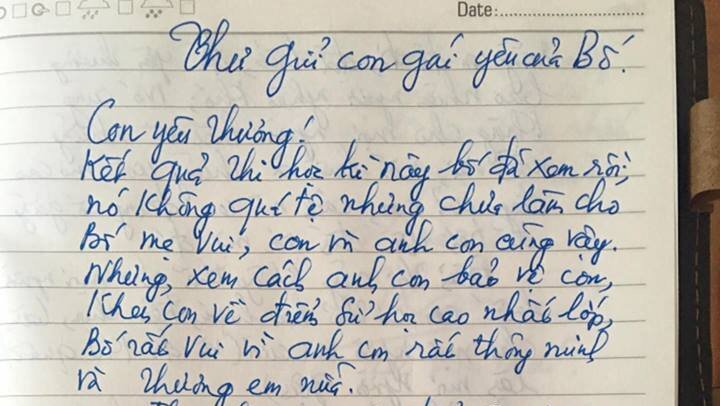 Date:
Thư gửi con gái yêu của Bố.
Con yêu thương!
Kết quả thi học kì này bố đã xem rồi,
nó không quá tệ nhưng chưa làm cho
Bố mẹ vui, con và anh con cũng vậy.
Nhưng, xem cách anh con bảo vệ con,
khen con về điểm Sử học cao nhất lớp,
Bố rất vui vì anh con rất thông minh
và thương em nữa.